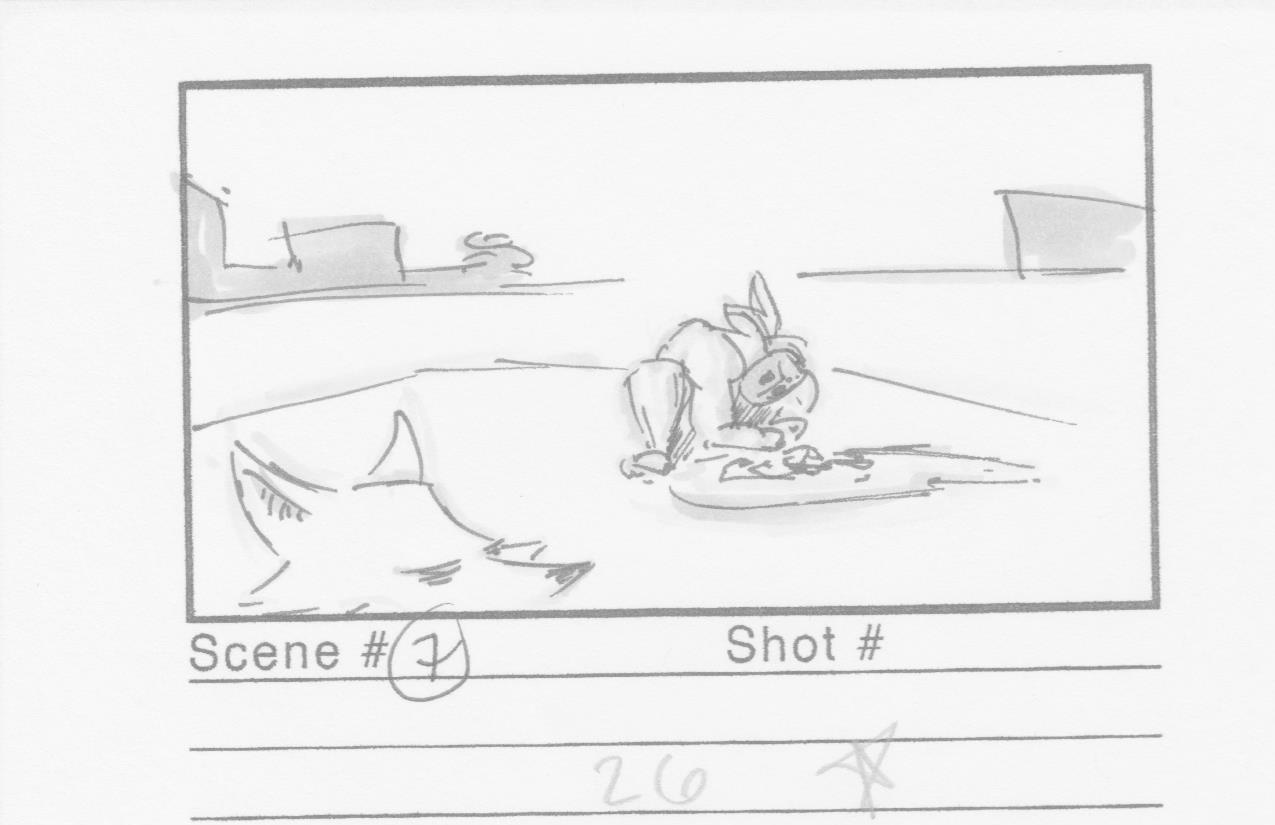 Scene # 7 Shot #
26